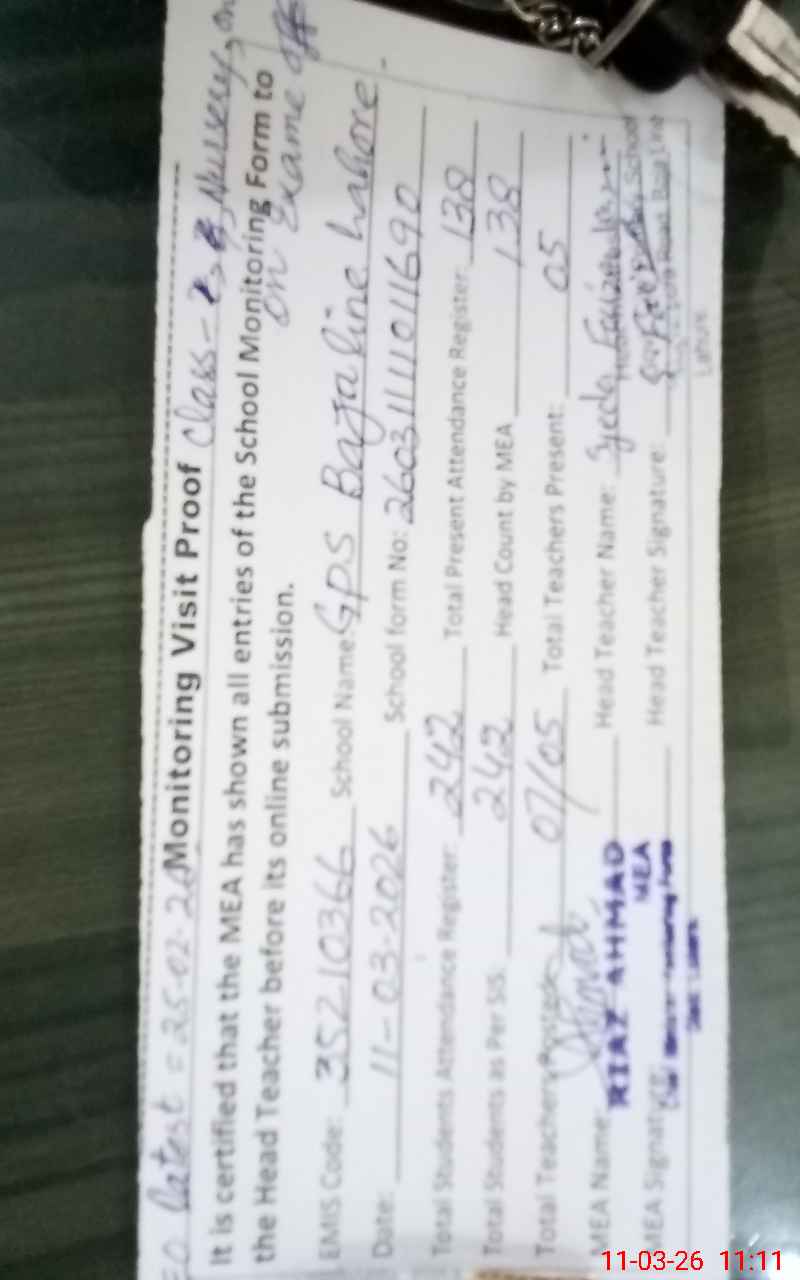 Latest = 25-02-26 Monitoring Visit Proof Class - 2, Nursery, on
It is certified that the MEA has shown all entries of the School Monitoring Form to
on Exame off
the Head Teacher before its online submission.
EMIS Code: 35210366 School Name: GPS Bajaline Lahore.
Date: 11-03-2026 School form No: 26031111011690
Total Students Attendance Register: 242 Total Present Attendance Register: 138
Total Students as Per SIS: 242 Head Count by MEA 138
Total Teachers Posted 07/05 Total Teachers Present: 05
MEA Name: RIAZ AHMAD Head Teacher Name: Syeda
MEA
MEA Signature: Head Teacher Signature:
School
Lahore
11-03-26 11:11